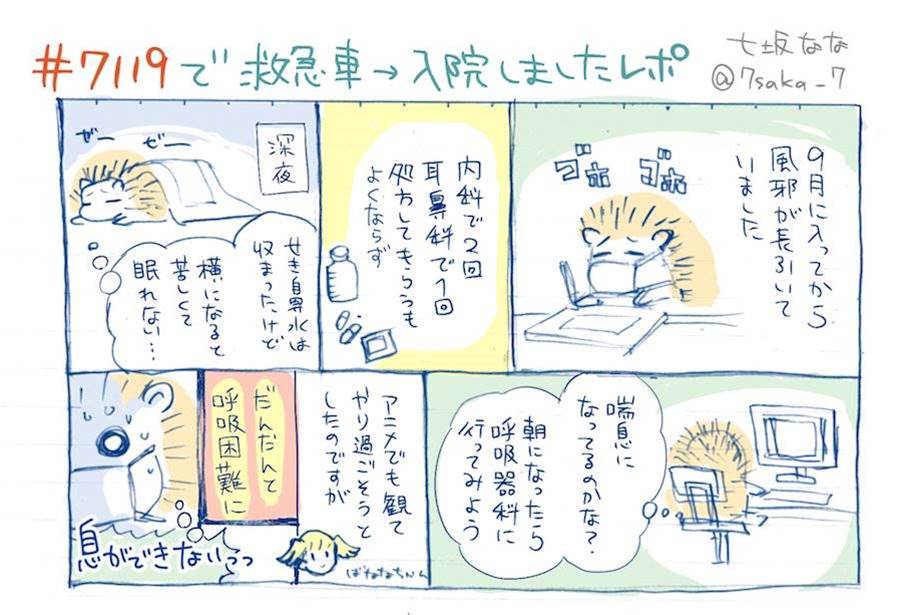 #7119で救急車→入院しましたレポ
七坂なな
@7saka_7
9月に入ってから
風邪が長引いて
いました
ゴホ
ゴホ
内科で2回
耳鼻科で1回
処方してもらうも
よくならず
深夜
ゼー
ゼー
せき鼻水は
収まったけど
横になると
苦しくて
眠れない…
喘息に
なってるのかな?
朝になったら
呼吸器科に
行ってみよう
アニメでも観て
やり過ごそうと
したのですが
ばななちゃん
だんだんと
呼吸困難に
息ができないっっ